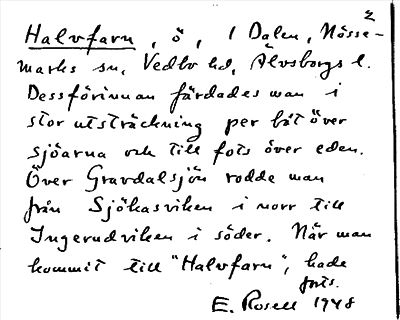 2
Halvfarn, ö, 1 Dalen, Nösse-
marks sn, Vedbo hd, Älvsborgs l.
Dessförinnan färdades man i
stor utsträckning per båt över
sjöarna och till fots över eden.
Över Gravdalsjön rodde man
från Sjökasviken i norr till
Ingerudviken i söder. När man
kommit till "Halvfarn", hade
forts.
E. Rosell 1948